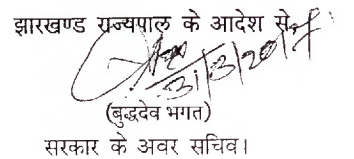 झारखण्ड राज्यपाल के आदेश से
31/3/2017
(बुद्धदेव भगत)
सरकार के अवर सचिव।